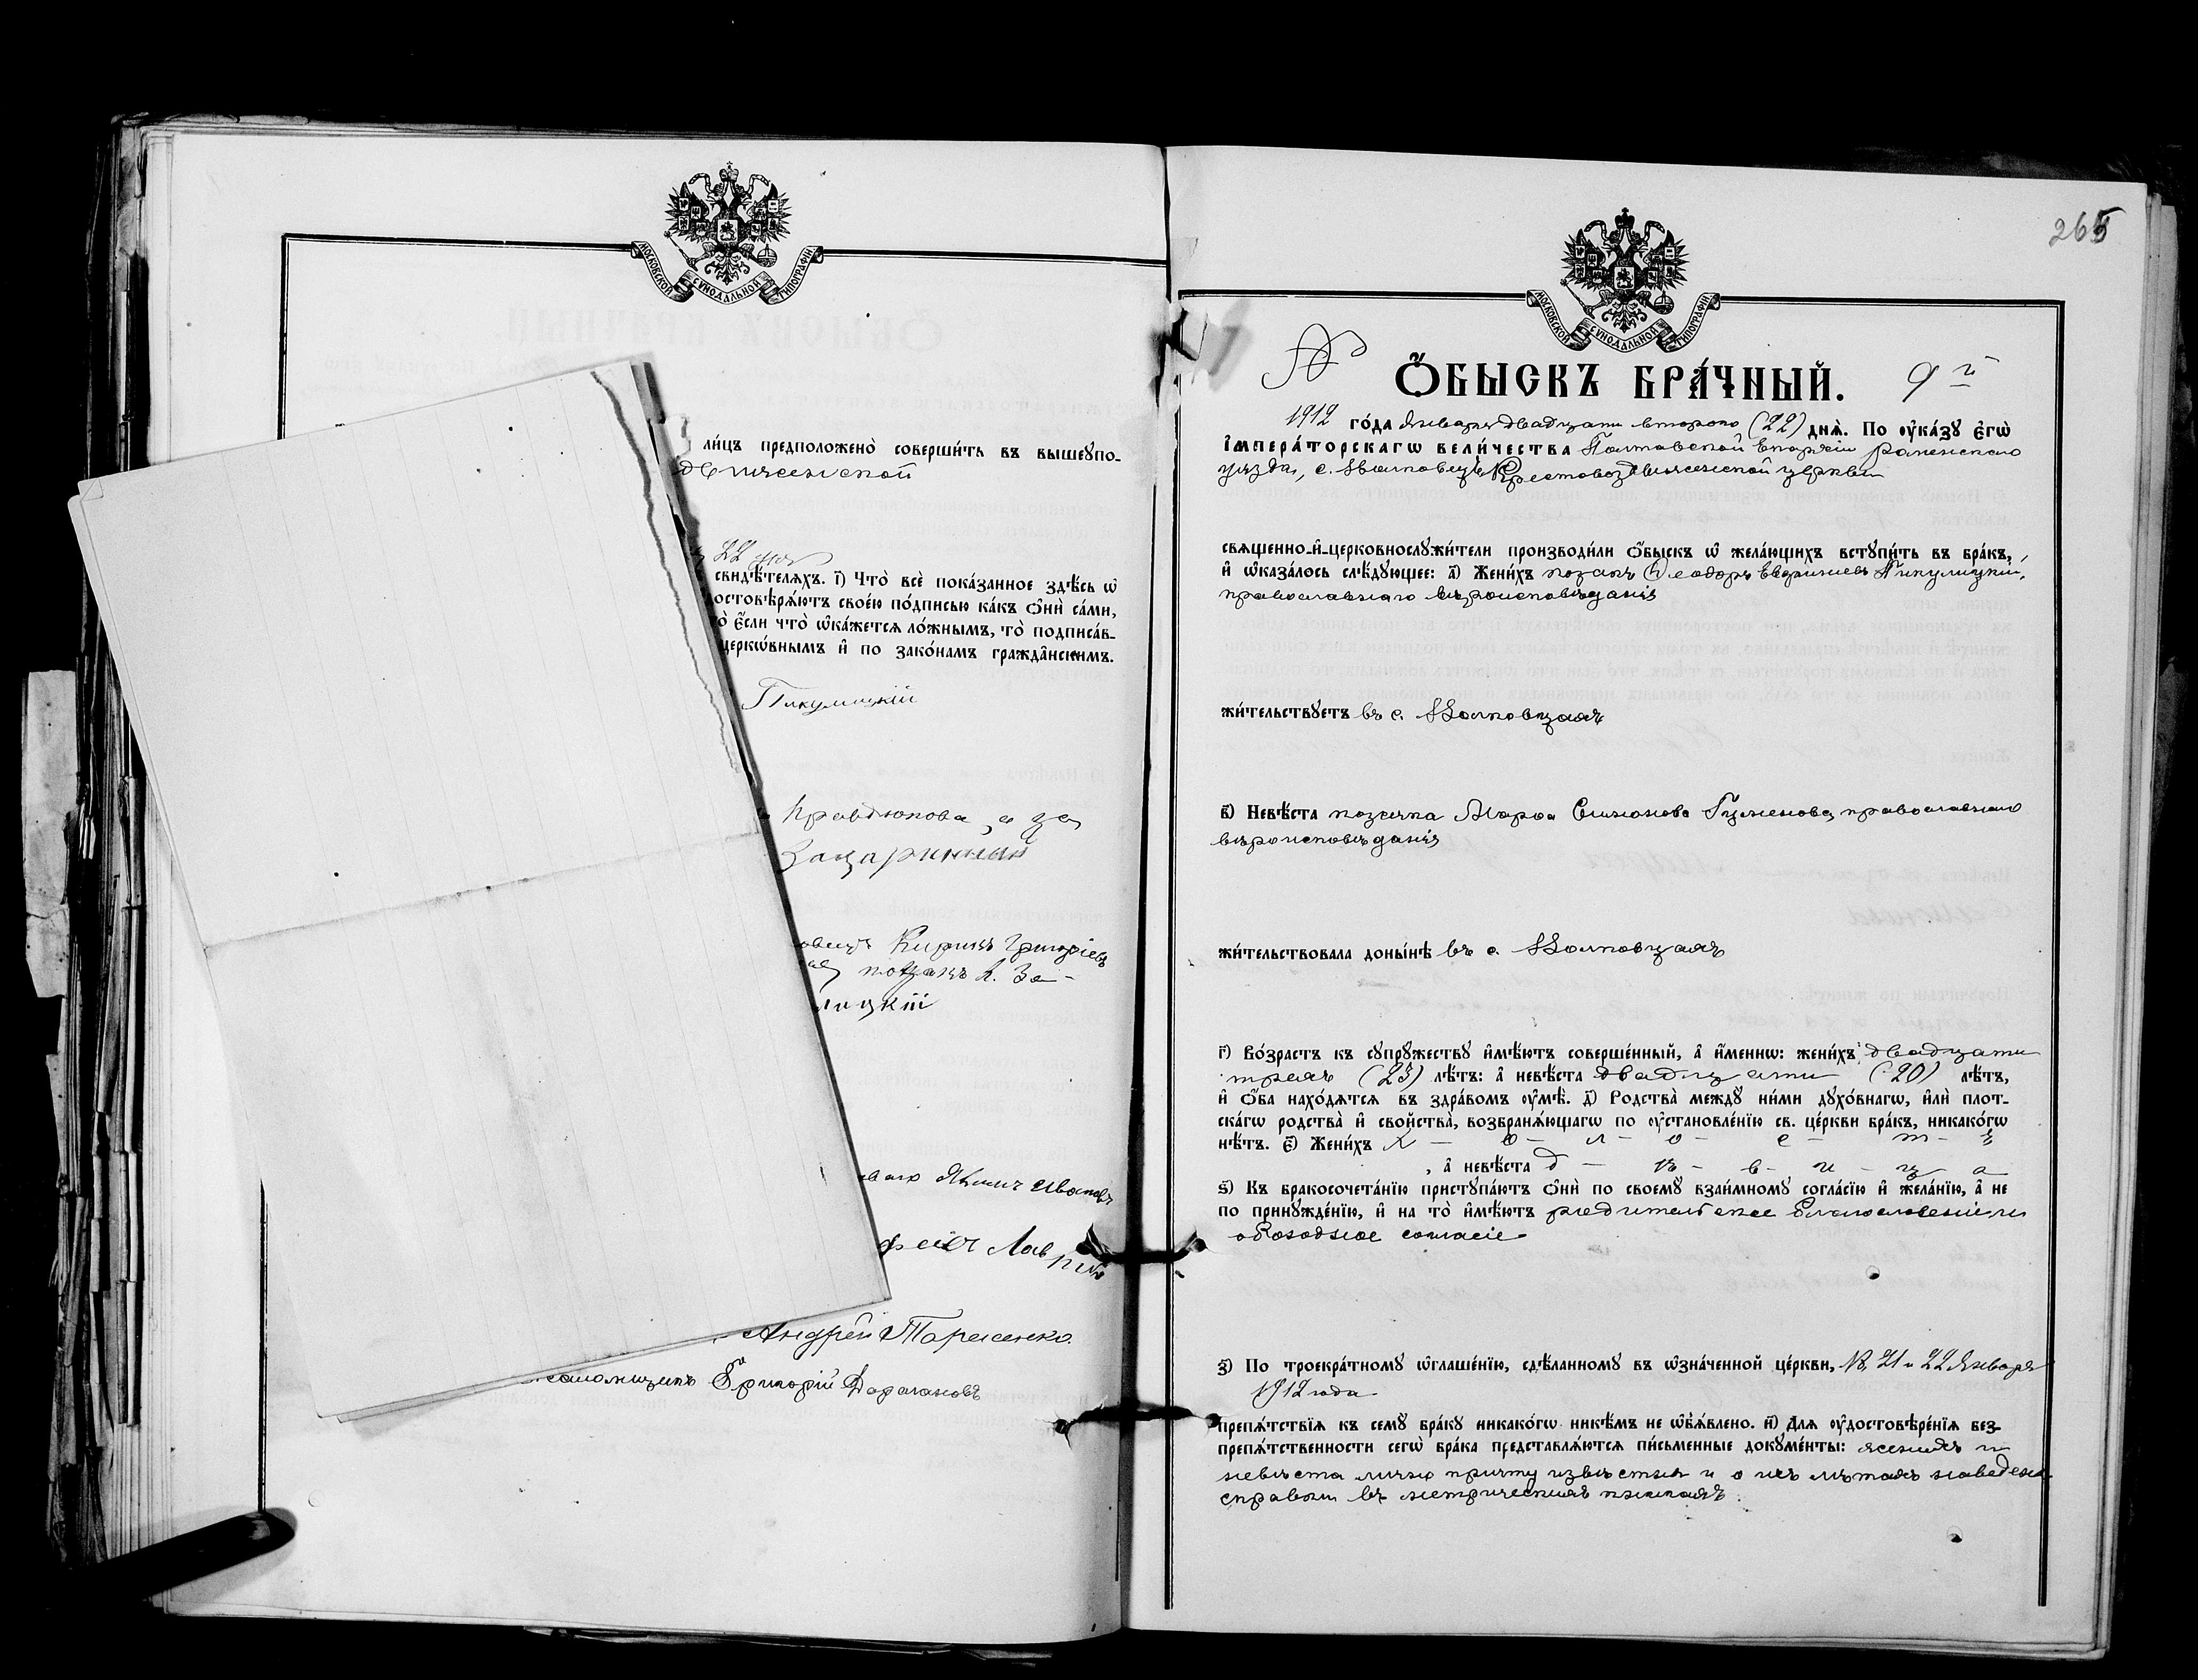 МОСКОВСКОЙ СѴНОДАЛЬНОЙ ТИПОГРАФІИ
ли́цъ предположено̀ соверши́ть въ вышеꙋпо-
движенской
22 дня
свидѣ́телѧхъ. і҃) Что̀ всѐ пока́занное здѣ́сь ѡ҆
остовѣрѧ́ютъ свое́ю по́дписью ка́къ ѻ҆нѝ са́ми,
о̀ є҆́сли что̀ ѡ҆ка́жетсѧ ло́жнымъ, то̀ подписа́в-
церкѡ́внымъ и҆ по зако́намъ гражда́нскимъ.
Пикулицкій
Правдюкова, а за
овецъ Кирилъ Григоріевъ
козакъ А. За-
лицкій
Якимъ Ивановъ
фей Лав
Андрей Тарасенко.
псаломщикъ Григорій Дарагановъ
265
МОСКОВСКОЙ СѴНОДАЛЬНОЙ ТИПОГРАФІИ
Ѻ҆БЫСКЪ БРА́ЧНЫЙ. 9й
1912 го́да Января двадцать второго (22) днѧ̀. По ᲂу҆ка́зꙋ є҆гѡ̀
І҆МПЕРА́ТОРСКАГѠ ВЕЛИ́ЧЕСТВА Полтавской Епархіи Роменскаго
уѣзда, с. Волковецъ Крестовоздвиженской церкви
свѧщенно-и҆-церковнослꙋжи́тели производи́ли ѻ҆́быскъ ѡ҆ жела́ющихъ встꙋпи́ть въ бра́къ,
и҆ ѡ҆каза́лось слѣ́дꙋющее: а҃) Жени́хъ козакъ Ѳеодоръ Евфиміевъ Пикулицкій,
православнаго вѣроисповѣданія
жи́тельствꙋетъ въ с. Волковцахъ
в҃) Невѣ́ста козачка Марѳа Симонова Гуменова, православнаго
вѣроисповѣданія
жи́тельствовала доны́нѣ въ с. Волковцахъ
г҃) Во́зрастъ къ сꙋпрꙋ́жествꙋ и҆мѣ́ютъ соверше́нный, а҆ и҆́меннѡ: жени́хъ двадцати
трехъ (23) лѣ́тъ: а҆ невѣ́ста двадцати (20) лѣ́тъ,
и҆ ѻ҆́ба нахо́дѧтсѧ въ здра́вомъ ᲂу҆мѣ̀. д҃) Родства̀ междꙋ ни́ми дꙋхо́внагѡ, и҆лѝ плот-
ска́гѡ родства̀ и҆ сво́йства, возбранѧ́ющагѡ по ᲂу҆становле́нїю св. це́ркви бра́къ, никако́гѡ
нѣ́тъ. є҃) Жени́хъ х — о — л — о — с — т — ъ
, а҆ невѣ́ста д — ѣ — в — и — ц — а
ѕ҃) Къ бракосочета́нїю пристꙋпа́ютъ ѻ҆нѝ по своемꙋ̀ взаи́мномꙋ согла́сїю и҆ жела́нїю, а҆ не
по принꙋжде́нїю, и҆ на то̀ и҆мѣ́ютъ родительское благословеніе и
обоюдное согласіе
з҃) По троекра́тномꙋ ѡ҆глаше́нїю, сдѣ́ланномꙋ въ ѡ҆зна́ченной це́ркви, 18, 21 и 22 Января
1912 года
препѧ́тствїѧ къ семꙋ̀ бра́кꙋ никако́гѡ никѣ́мъ не ѡ҆б̾ѧ́влено. и҃) Длѧ ᲂу҆достовѣре́нїѧ без-
препѧ́тственности сегѡ̀ бра́ка представлѧ́ютсѧ пи́сьменные докꙋме́нты: женихъ и
невѣста лично причту извѣстны и о ихъ лѣтахъ наведены
справки въ метрическихъ книгахъ.